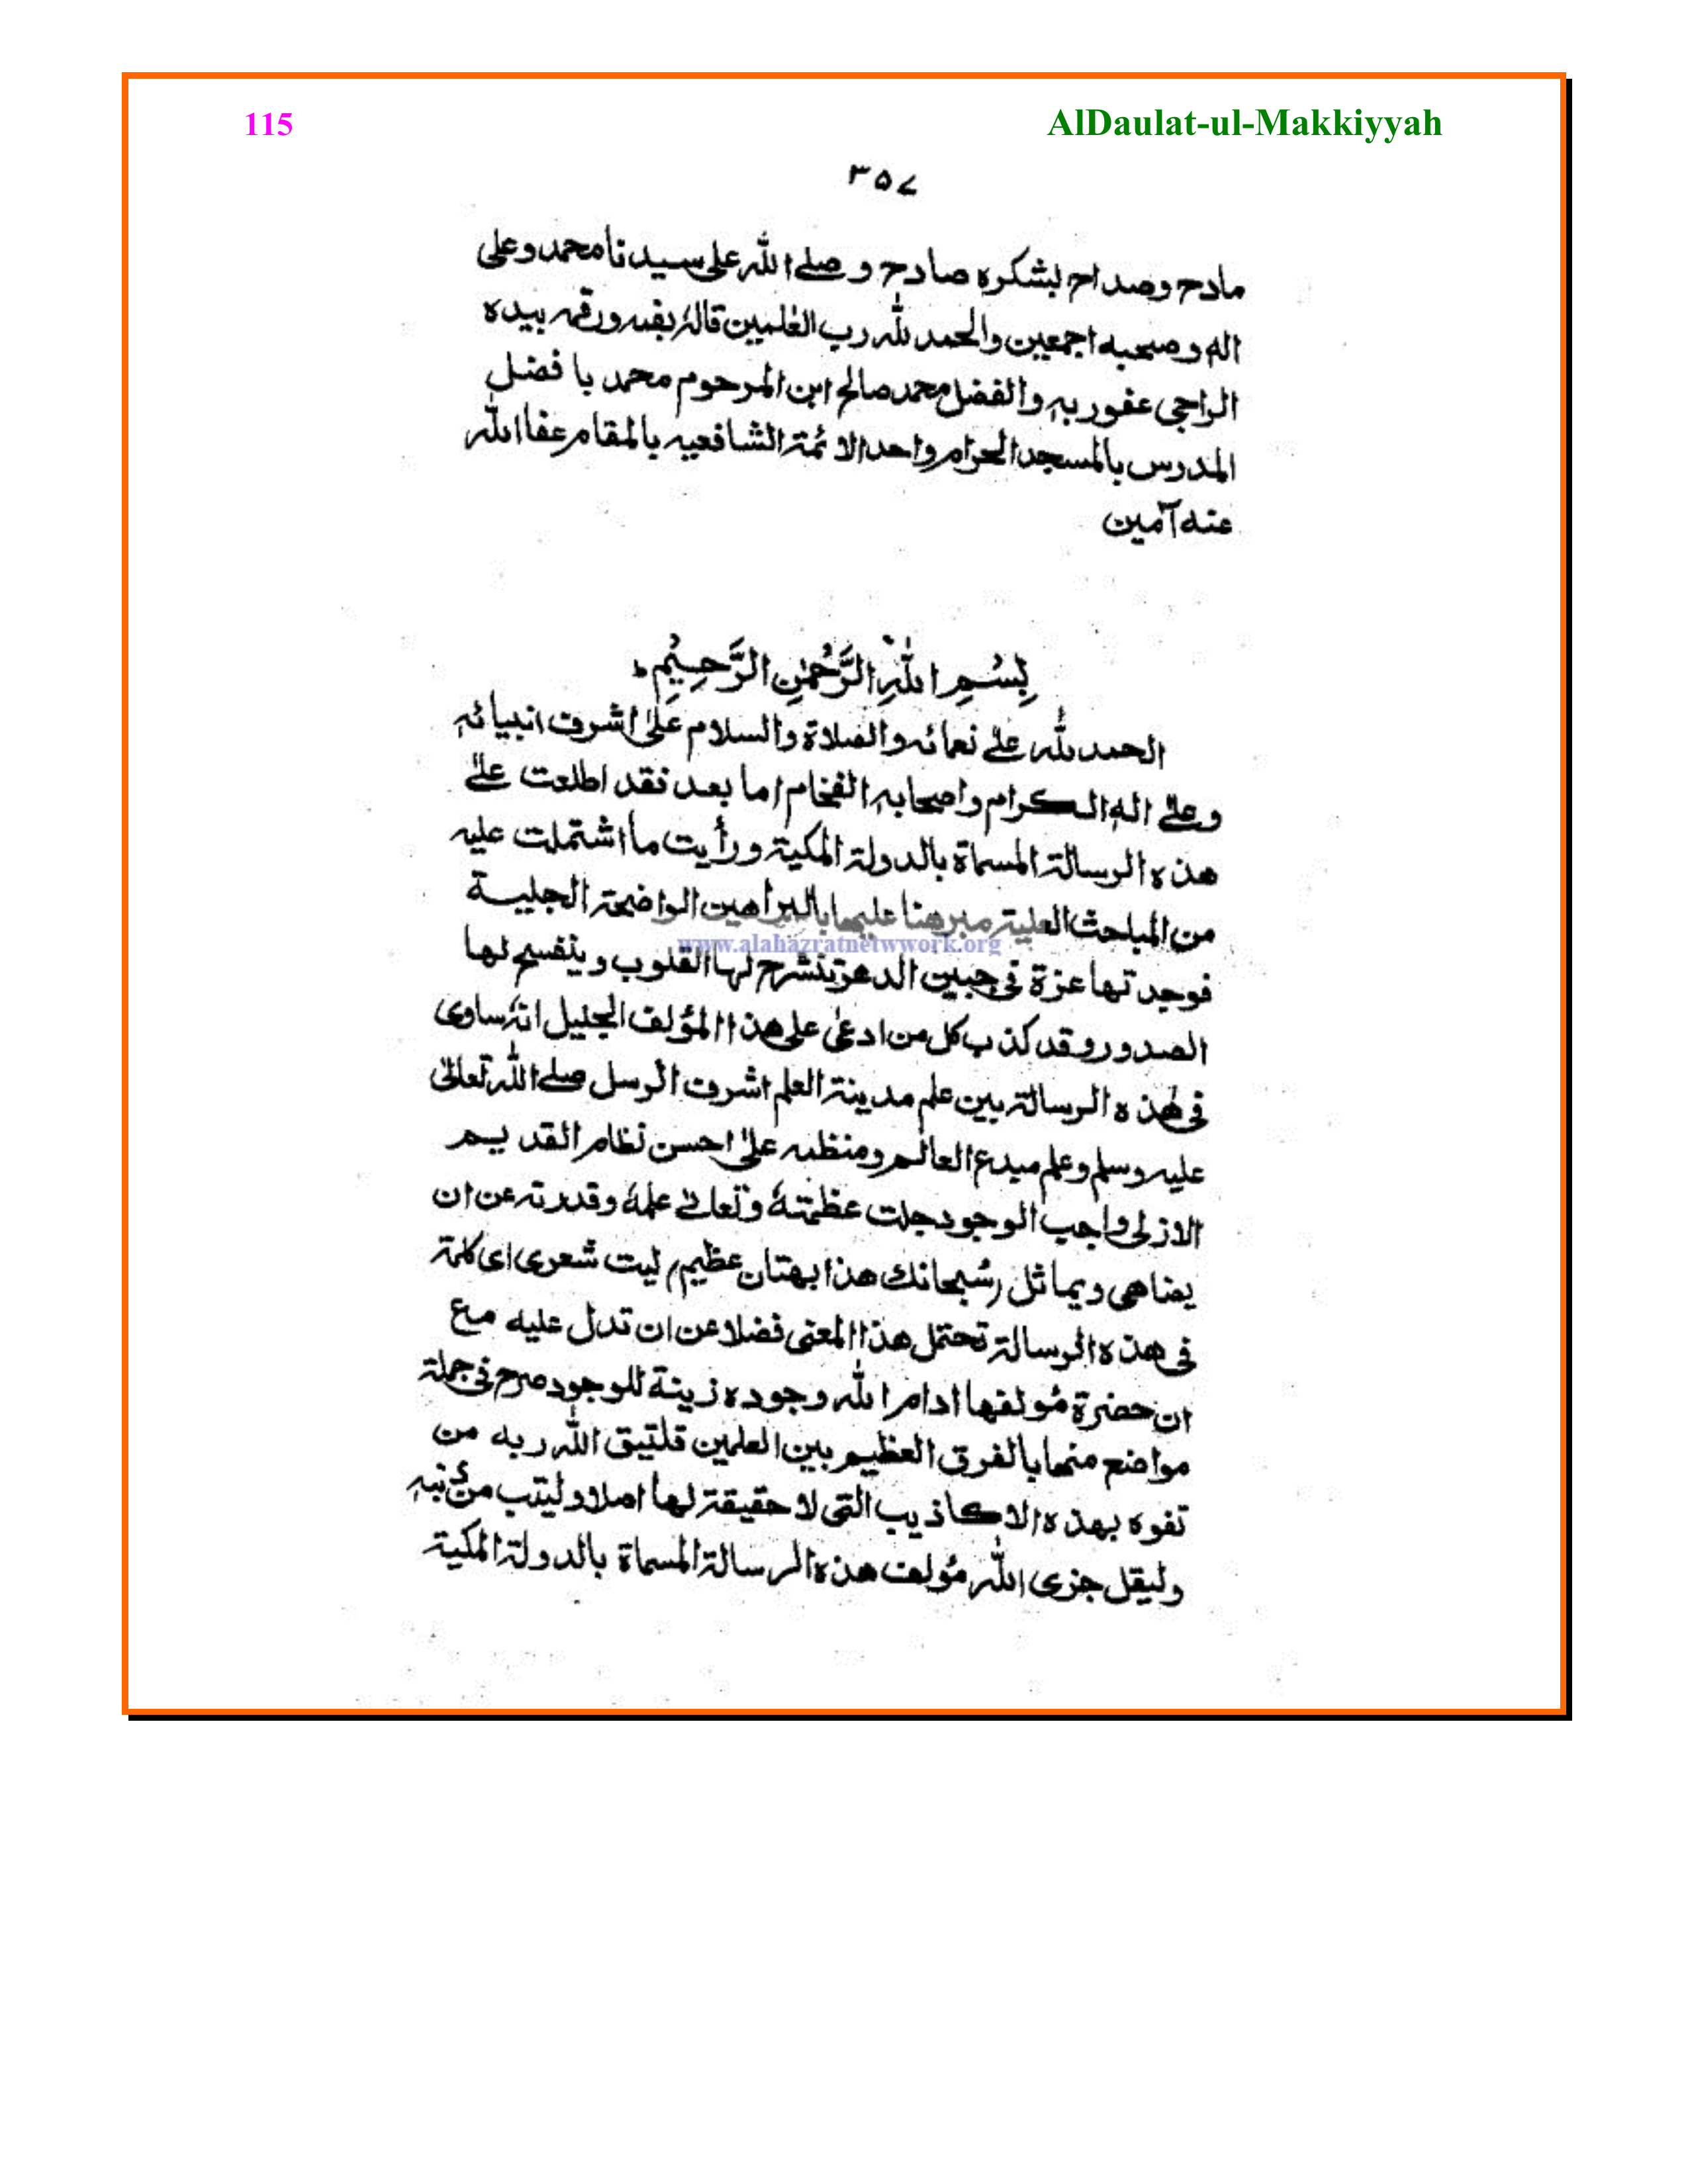 115 AlDaulat-ul-Makkiyyah
۳۵۷
مادح وصداح لبشكره صادح وصلے الله على سيدنا محمد وعلى
اله وصحبه اجمعين والحمد لله رب العٰلمين قالهٗ بفمه ورقمه بيده
الراجى عفوربه والفضل محمد صالح ابن المرحوم محمد با فضل
المدرس بالمسجد الحرام واحد الائمة الشافعيه بالمقام عفا الله
عنه آمين
بِسْمِ اللهِ الرَّحْمٰنِ الرَّحِيْمِ ط
الحمد لله علےٰ نعمائه والصلاة والسلام علىٰ اشرف انبيائه
وعلےٰ اله الكرام واصحابه الفخام اما بعد فقد اطلعت علےٰ
هذه الرسالة المسماة بالدولة المكية ورأيت ما اشتملت عليه
من المباحث العلية مبرهنا عليها بالبراهين الواضحة الجليـة
www.alahazratnetwwork.org
فوجدتها عزة فى جبين الدهر ينشرح لها القلوب وينفسح لها
الصدور وقد كذب كل من ادعىٰ على هذا المؤلف الجليل انهٗ ساوى
فى هٰذه الرسالة بين علم مدينة العلم اشرف الرسل صلے الله تعالىٰ
عليه وسلم وعلم مبدع العالم ومنظمه علىٰ احسن نظام القديم
الازلى واجب الوجود جلت عظمتهٗ وتعالےٰ علمهٗ وقدرته عن ان
يضاهى ويماثل سُبحانك هذا بهتان عظيم ليت شعرى اى كلمة
فى هذه الرسالة تحتمل هذا المعنى فضلا عن ان تدل عليه مع
ان حضرة مُولفها ادام الله وجوده زينة للوجود صرح فى جملة
مواضع منها بالفرق العظيم بين العلمين فلتيق الله ربه من
تفوه بهذه الاكاذيب التى لا حقيقة لها اصلا وليتب من ذنبه
وليقل جزى الله مُولف هذه الرسالة المسماة بالدولة المكية